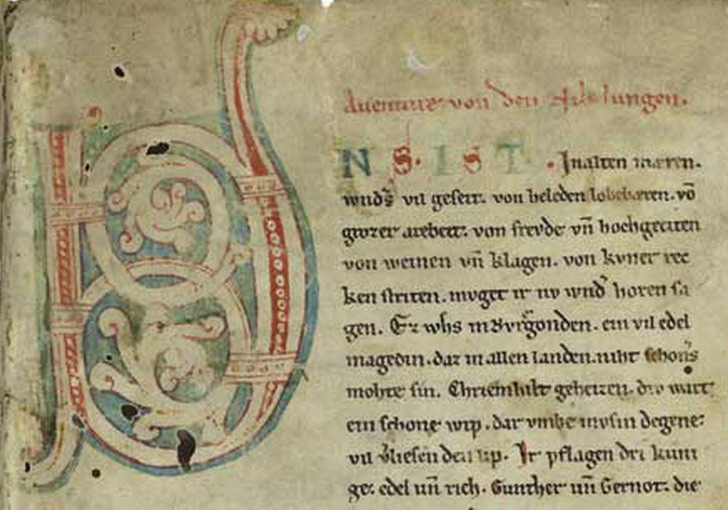 Auenture von den Nibelungen.
U
NS. IST. Jn alten mæren.
wnders vil geseit. von heleden lobebæren. võ
grozer arebeit. von frevde vñ hochgeciten
von weinen vñ klagen. von kvner rec
ken striten. mvget ir nv wnder horen sa
gen. Ez whs in Bvrgonden. ein vil edel
magedin. daz in allen landen. niht schoners
mohte sin. Chriemhilt geheizen. div wart
ein schone wip. dar vmbe mvsin degene
vil verliesen den lip. Ir pflagen dri kuni
ge. edel uñ rich. Gunther uñ Gernot. die